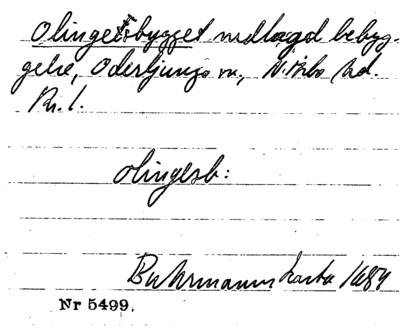 Olingetsbygget nedlagd bebyg-
gelse, Oderljunga sn, N. Åsbo hd.
Kr. l.
Olingesb:
Buhrmanns karta 1684
Nr 5499.